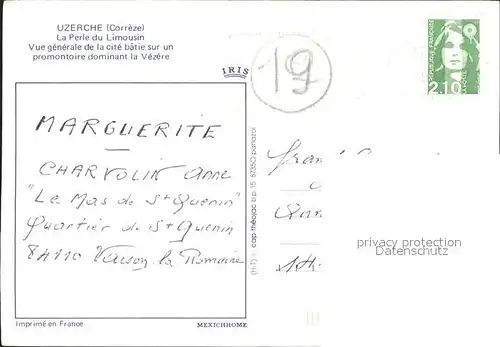 UZERCHE (Corrèze)
La Perle du Limousin
Vue générale de la cité bâtie sur un
promontoire dominant la Vézère
IRIS
19
RÉPUBLIQUE FRANÇAISE
2,10
MARGUERITE
CHARVOLIN Anne
"Le Mas de St Quenin"
Quartier de St Quenin
84110 Vaison la Romaine
(H-T) cap-théojac b.p. 15 87350 panazol
privacy protection
Datenschutz
Imprimé en France
MEXICHROME